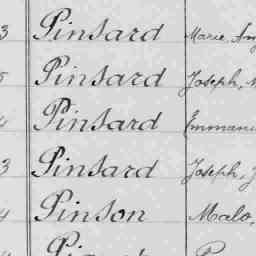 3 Pinsard Marie Ang
5 Pinsard Joseph, M
4 Pinsard Emmanu
3 Pinsard Joseph, J
4 Pinson Malo,